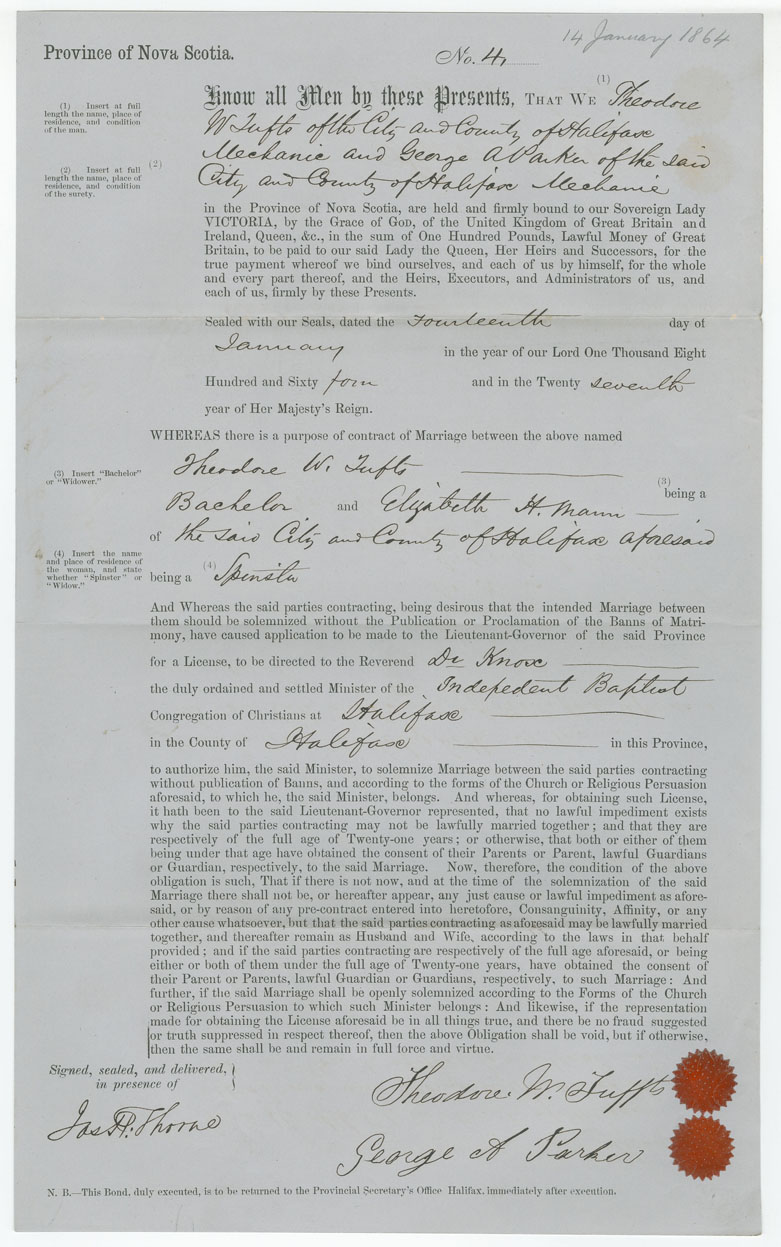 14 January 1864
Province of Nova Scotia.
No. 4,
(1) Insert at full length the name, place of residence, and condition of the man.
(2) Insert at full length the name, place of residence, and condition of the surety.
Know all Men by these Presents, THAT WE (1) Theodore
W Tufts of the City and County of Halifax
(2) Mechanic and George A Parker of the said
City and County of Halifax Mechanic
in the Province of Nova Scotia, are held and firmly bound to our Sovereign Lady
VICTORIA, by the Grace of GOD, of the United Kingdom of Great Britain and
Ireland, Queen, &c., in the sum of One Hundred Pounds, Lawful Money of Great
Britain, to be paid to our said Lady the Queen, Her Heirs and Successors, for the
true payment whereof we bind ourselves, and each of us by himself, for the whole
and every part thereof, and the Heirs, Executors, and Administrators of us, and
each of us, firmly by these Presents.
Sealed with our Seals, dated the Fourteenth day of
January in the year of our Lord One Thousand Eight
Hundred and Sixty four and in the Twenty seventh
year of Her Majesty's Reign.
WHEREAS there is a purpose of contract of Marriage between the above named
(3) Insert "Bachelor" or "Widower."
Theodore W. Tufts (3) being a
Bachelor and Elizabeth H. Mann
of the said City and County of Halifax aforesaid
(4) Insert the name and place of residence of the woman, and state whether "Spinster" or "Widow."
being a (4) Spinster
And Whereas the said parties contracting, being desirous that the intended Marriage between
them should be solemnized without the Publication or Proclamation of the Banns of Matri-
mony, have caused application to be made to the Lieutenant-Governor of the said Province
for a License, to be directed to the Reverend Dr Knox
the duly ordained and settled Minister of the Indepedent Baptist
Congregation of Christians at Halifax
in the County of Halifax in this Province,
to authorize him, the said Minister, to solemnize Marriage between the said parties contracting
without publication of Banns, and according to the forms of the Church or Religious Persuasion
aforesaid, to which he, the said Minister, belongs. And whereas, for obtaining such License,
it hath been to the said Lieutenant-Governor represented, that no lawful impediment exists
why the said parties contracting may not be lawfully married together; and that they are
respectively of the full age of Twenty-one years; or otherwise, that both or either of them
being under that age have obtained the consent of their Parents or Parent, lawful Guardians
or Guardian, respectively, to the said Marriage. Now, therefore, the condition of the above
obligation is such, That if there is not now, and at the time of the solemnization of the said
Marriage there shall not be, or hereafter appear, any just cause or lawful impediment as afore-
said, or by reason of any pre-contract entered into heretofore, Consanguinity, Affinity, or any
other cause whatsoever, but that the said parties contracting as aforesaid may be lawfully married
together, and thereafter remain as Husband and Wife, according to the laws in that behalf
provided; and if the said parties contracting are respectively of the full age aforesaid, or being
either or both of them under the full age of Twenty-one years, have obtained the consent of
their Parent or Parents, lawful Guardian or Guardians, respectively, to such Marriage: And
further, if the said Marriage shall be openly solemnized according to the Forms of the Church
or Religious Persuasion to which such Minister belongs: And likewise, if the representation
made for obtaining the License aforesaid be in all things true, and there be no fraud suggested
or truth suppressed in respect thereof, then the above Obligation shall be void, but if otherwise,
then the same shall be and remain in full force and virtue.
Signed, sealed, and delivered,
in presence of
Jas H. Thorne
Theodore. W. Tuffts
George A Parker
N. B.—This Bond, duly executed, is to be returned to the Provincial Secretary's Office Halifax. immediately after execution.